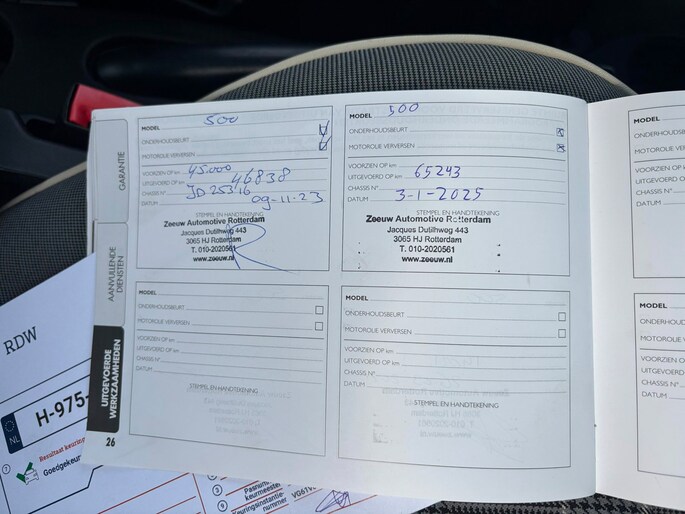 GARANTIE
AANVULLENDE
DIENSTEN
UITGEVOERDE
WERKZAAMHEDEN
26
MODEL 500
ONDERHOUDSBEURT
MOTOROLIE VERVERSEN
VOORZIEN OP km 45.000
UITGEVOERD OP km 46838
CHASSIS N° JD25316
DATUM 09-11-23
STEMPEL EN HANDTEKENING
Zeeuw Automotive Rotterdam
Jacques Dutilhweg 443
3065 HJ Rotterdam
T. 010-2020561
www.zeeuw.nl
MODEL 500
ONDERHOUDSBEURT
MOTOROLIE VERVERSEN
VOORZIEN OP km
UITGEVOERD OP km 65243
CHASSIS N°
DATUM 3-1-2025
STEMPEL EN HANDTEKENING
Zeeuw Automotive Rotterdam
Jacques Dutilhweg 443
3065 HJ Rotterdam
T. 010-2020561
www.zeeuw.nl
MODEL
ONDERHOUDSBEURT
MOTOROLIE VERVERSEN
VOORZIEN OP km
UITGEVOERD OP km
CHASSIS N°
DATUM
STEMPEL EN HANDTEKENING
MODEL
ONDERHOUDSBEURT
MOTOROLIE VERVERSEN
VOORZIEN OP km
UITGEVOERD OP km
CHASSIS N°
DATUM
STEMPEL EN HANDTEKENING
MODEL
ONDERHOUDSB
MOTOROLIE V
VOORZIEN OP
UITGEVOERD O
CHASSIS N°
DATUM
MODEL
ONDERHOUD
MOTOROLIE
VOORZIEN O
UITGEVOERD
CHASSIS N°
DATUM
RDW
NL
H-975-
Resultaat keuring
Goedgekeur